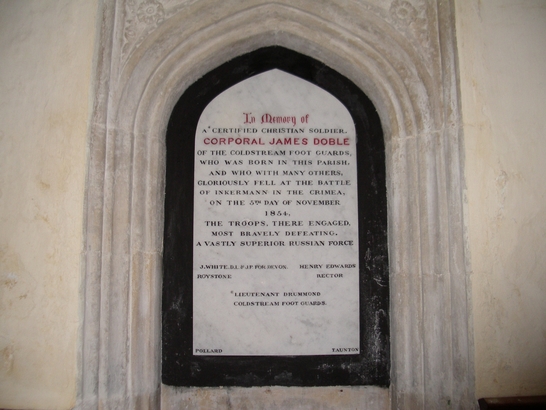 In Memory of
A "CERTIFIED CHRISTIAN SOLDIER,
CORPORAL JAMES DOBLE
OF THE COLDSTREAM FOOT GUARDS,
WHO WAS BORN IN THIS PARISH,
AND WHO WITH MANY OTHERS,
GLORIOUSLY FELL AT THE BATTLE
OF INKERMANN IN THE CRIMEA,
ON THE 5TH DAY OF NOVEMBER
1854,
THE TROOPS, THERE ENGAGED,
MOST BRAVELY DEFEATING,
A VASTLY SUPERIOR RUSSIAN FORCE
J. WHITE, D.L. & J.P. FOR DEVON. HENRY EDWARDS
ROYSTONE RECTOR
"LIEUTENANT DRUMMOND
COLDSTREAM FOOT GUARDS.
POLLARD TAUNTON